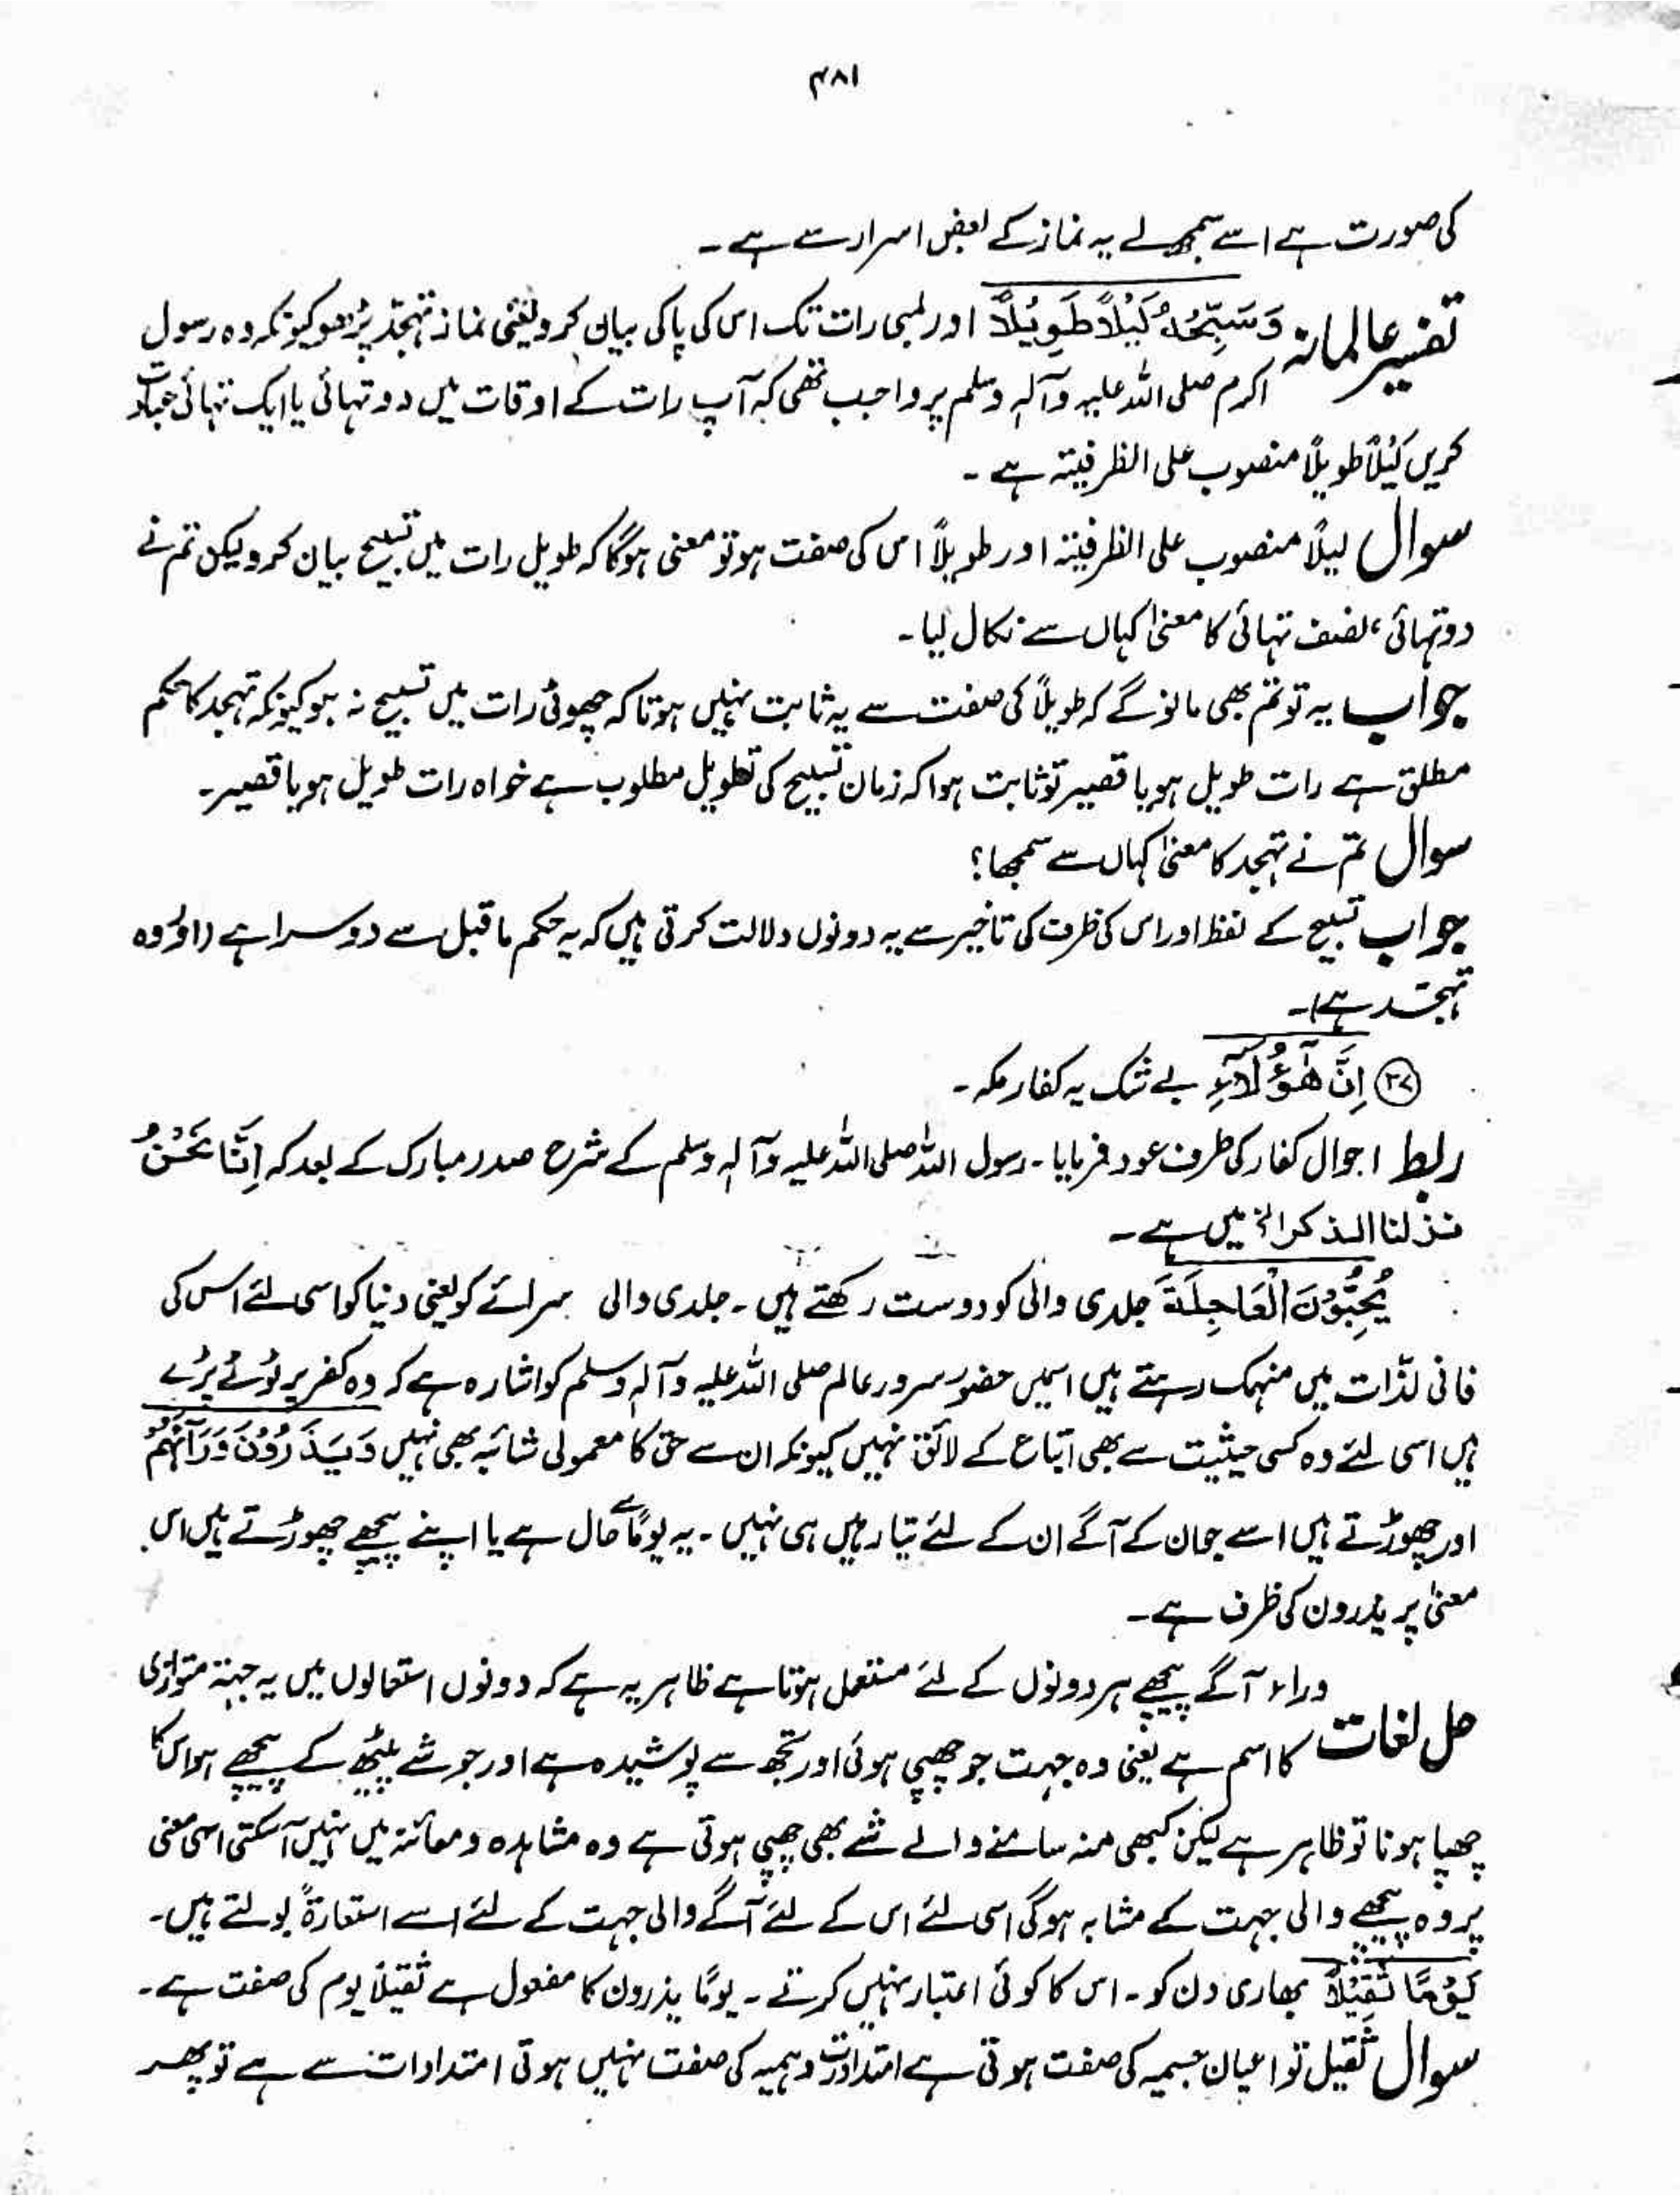 ۴۸۱
کی صورت ہے اسے سمجھ لے یہ نماز کے بعض اسرار سے ہے ۔
تفسیر عالمانہ وَسَبِّحْهُ لَيْلًا طَوِيْلًا اور لمبی رات تک اس کی پاکی بیان کرو یعنی نماز تہجّد پڑھو کیونکہ وہ رسول
اکرم صلی اللہ علیہ وآلہٖ وسلم پر واجب تھی کہ آپ رات کے اوقات میں دو تہائی یا ایک تہائی عبادت
کریں لَیْلاً طویلاً منصوب علی الظرفیتہ ہے ۔
سوال لیلاً منصوب علی الظرفیتہ اور طویلاً اس کی صفت ہو تو معنی ہوگا کہ طویل رات میں تسبیح بیان کرو لیکن تم نے
دو تہائی ، نصف تہائی کا معنیٰ کہاں سے نکال لیا ۔
جواب یہ تو تم بھی مانو گے کہ طویلاً کی صفت سے یہ ثابت نہیں ہوتا کہ چھوٹی رات میں تسبیح نہ ہو کیونکہ تہجد کا حکم
مطلق ہے رات طویل ہو یا قصیر تو ثابت ہوا کہ زمان تسبیح کی تطویل مطلوب ہے خواہ رات طویل ہو یا قصیر۔
سوال تم نے تہجد کا معنیٰ کہاں سے سمجھا ؟
جواب تسبیح کے لفظ اور اس کی ظرف کی تاخیر سے یہ دونوں دلالت کرتی ہیں کہ یہ حکم ماقبل سے دوسرا ہے (اور وہ
تہجّد ہے)۔
(۲۷) اِنَّ هٰٓؤُلَآءِ بے شک یہ کفار مکہ ۔
ربط احوال کفار کی طرف عود فرمایا ۔ رسول اللہ صلی اللہ علیہ وآلہٖ وسلم کے شرح صدر مبارک کے بعد کہ اِنَّا نَحْنُ
نزلنا الذکر الخ میں ہے ۔
يُحِبُّوْنَ الْعَاجِلَةَ جلدی والی کو دوست رکھتے ہیں ۔ جلدی والی سرائے کو یعنی دنیا کو اسی لئے اس کی
فانی لذّات میں منہمک رہتے ہیں اسمیں حضور سرور عالم صلی اللہ علیہ وآلہٖ وسلم کو اشارہ ہے کہ وہ کفر پر ٹوٹے پڑے
ہیں اسی لئے وہ کسی حیثیت سے بھی اتباع کے لائق نہیں کیونکہ ان سے حق کا معمولی شائبہ بھی نہیں وَيَذَرُوْنَ وَرَآءَهُمْ
اور چھوڑتے ہیں اسے جو ان کے آگے ان کے لئے تیار ہیں ہی نہیں ۔ یہ یوماً سے حال ہے یا اپنے پیچھے چھوڑتے ہیں اس
معنیٰ پر یذرون کی ظرف ہے ۔
وراء آگے پیچھے ہر دونوں کے لئے مستعمل ہوتا ہے ظاہر یہ ہے کہ دونوں استعمالوں میں یہ جہتہ متوازی
حل لغات کا اسم ہے یعنی وہ جہت جو چھپی ہوئی اور تجھ سے پوشیدہ ہے اور جو شے پیٹھ کے پیچھے ہو اس کا
چھپا ہونا تو ظاہر ہے لیکن کبھی منہ سامنے والے شے بھی چھپی ہوتی ہے وہ مشاہدہ ومعائنہ میں نہیں آسکتی اسی معنی
پر وہ پیچھے والی جہت کے مشابہ ہوگی اسی لئے اس کے لئے آگے والی جہت کے لئے اسے استعارۃً بولتے ہیں۔
يَوْمًا ثَقِيْلًا بھاری دن کو ۔ اس کا کوئی اعتبار نہیں کرتے ۔ یومًا یذرون کا مفعول ہے ثقیلاً یوم کی صفت ہے ۔
سوال ثقیل تو اعیان جسمیہ کی صفت ہوتی ہے امتدادات وہمیہ کی صفت نہیں ہوتی امتدادات سے ہے تو پھر